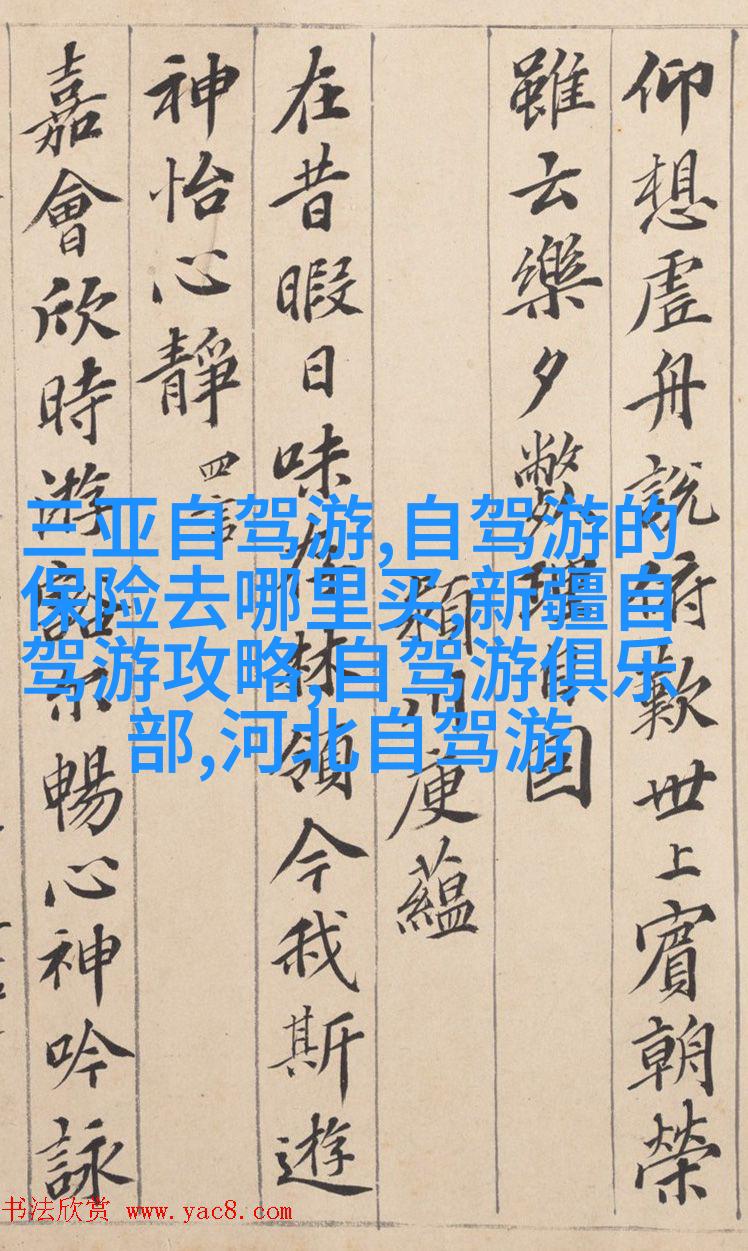 仰想虛舟說俯歎世上賓朝榮
雖云樂夕斃理自因
潁川庾蘊
在昔暇日味存林嶺今我斯遊
神怡心靜 四言
嘉會欣時遊豁尒暢心神吟詠
三亚自驾游,自驾游的
保险去哪里买,新疆自
驾游攻略,自驾游俱乐
部,河北自驾游
书法欣赏 www.yac8.com